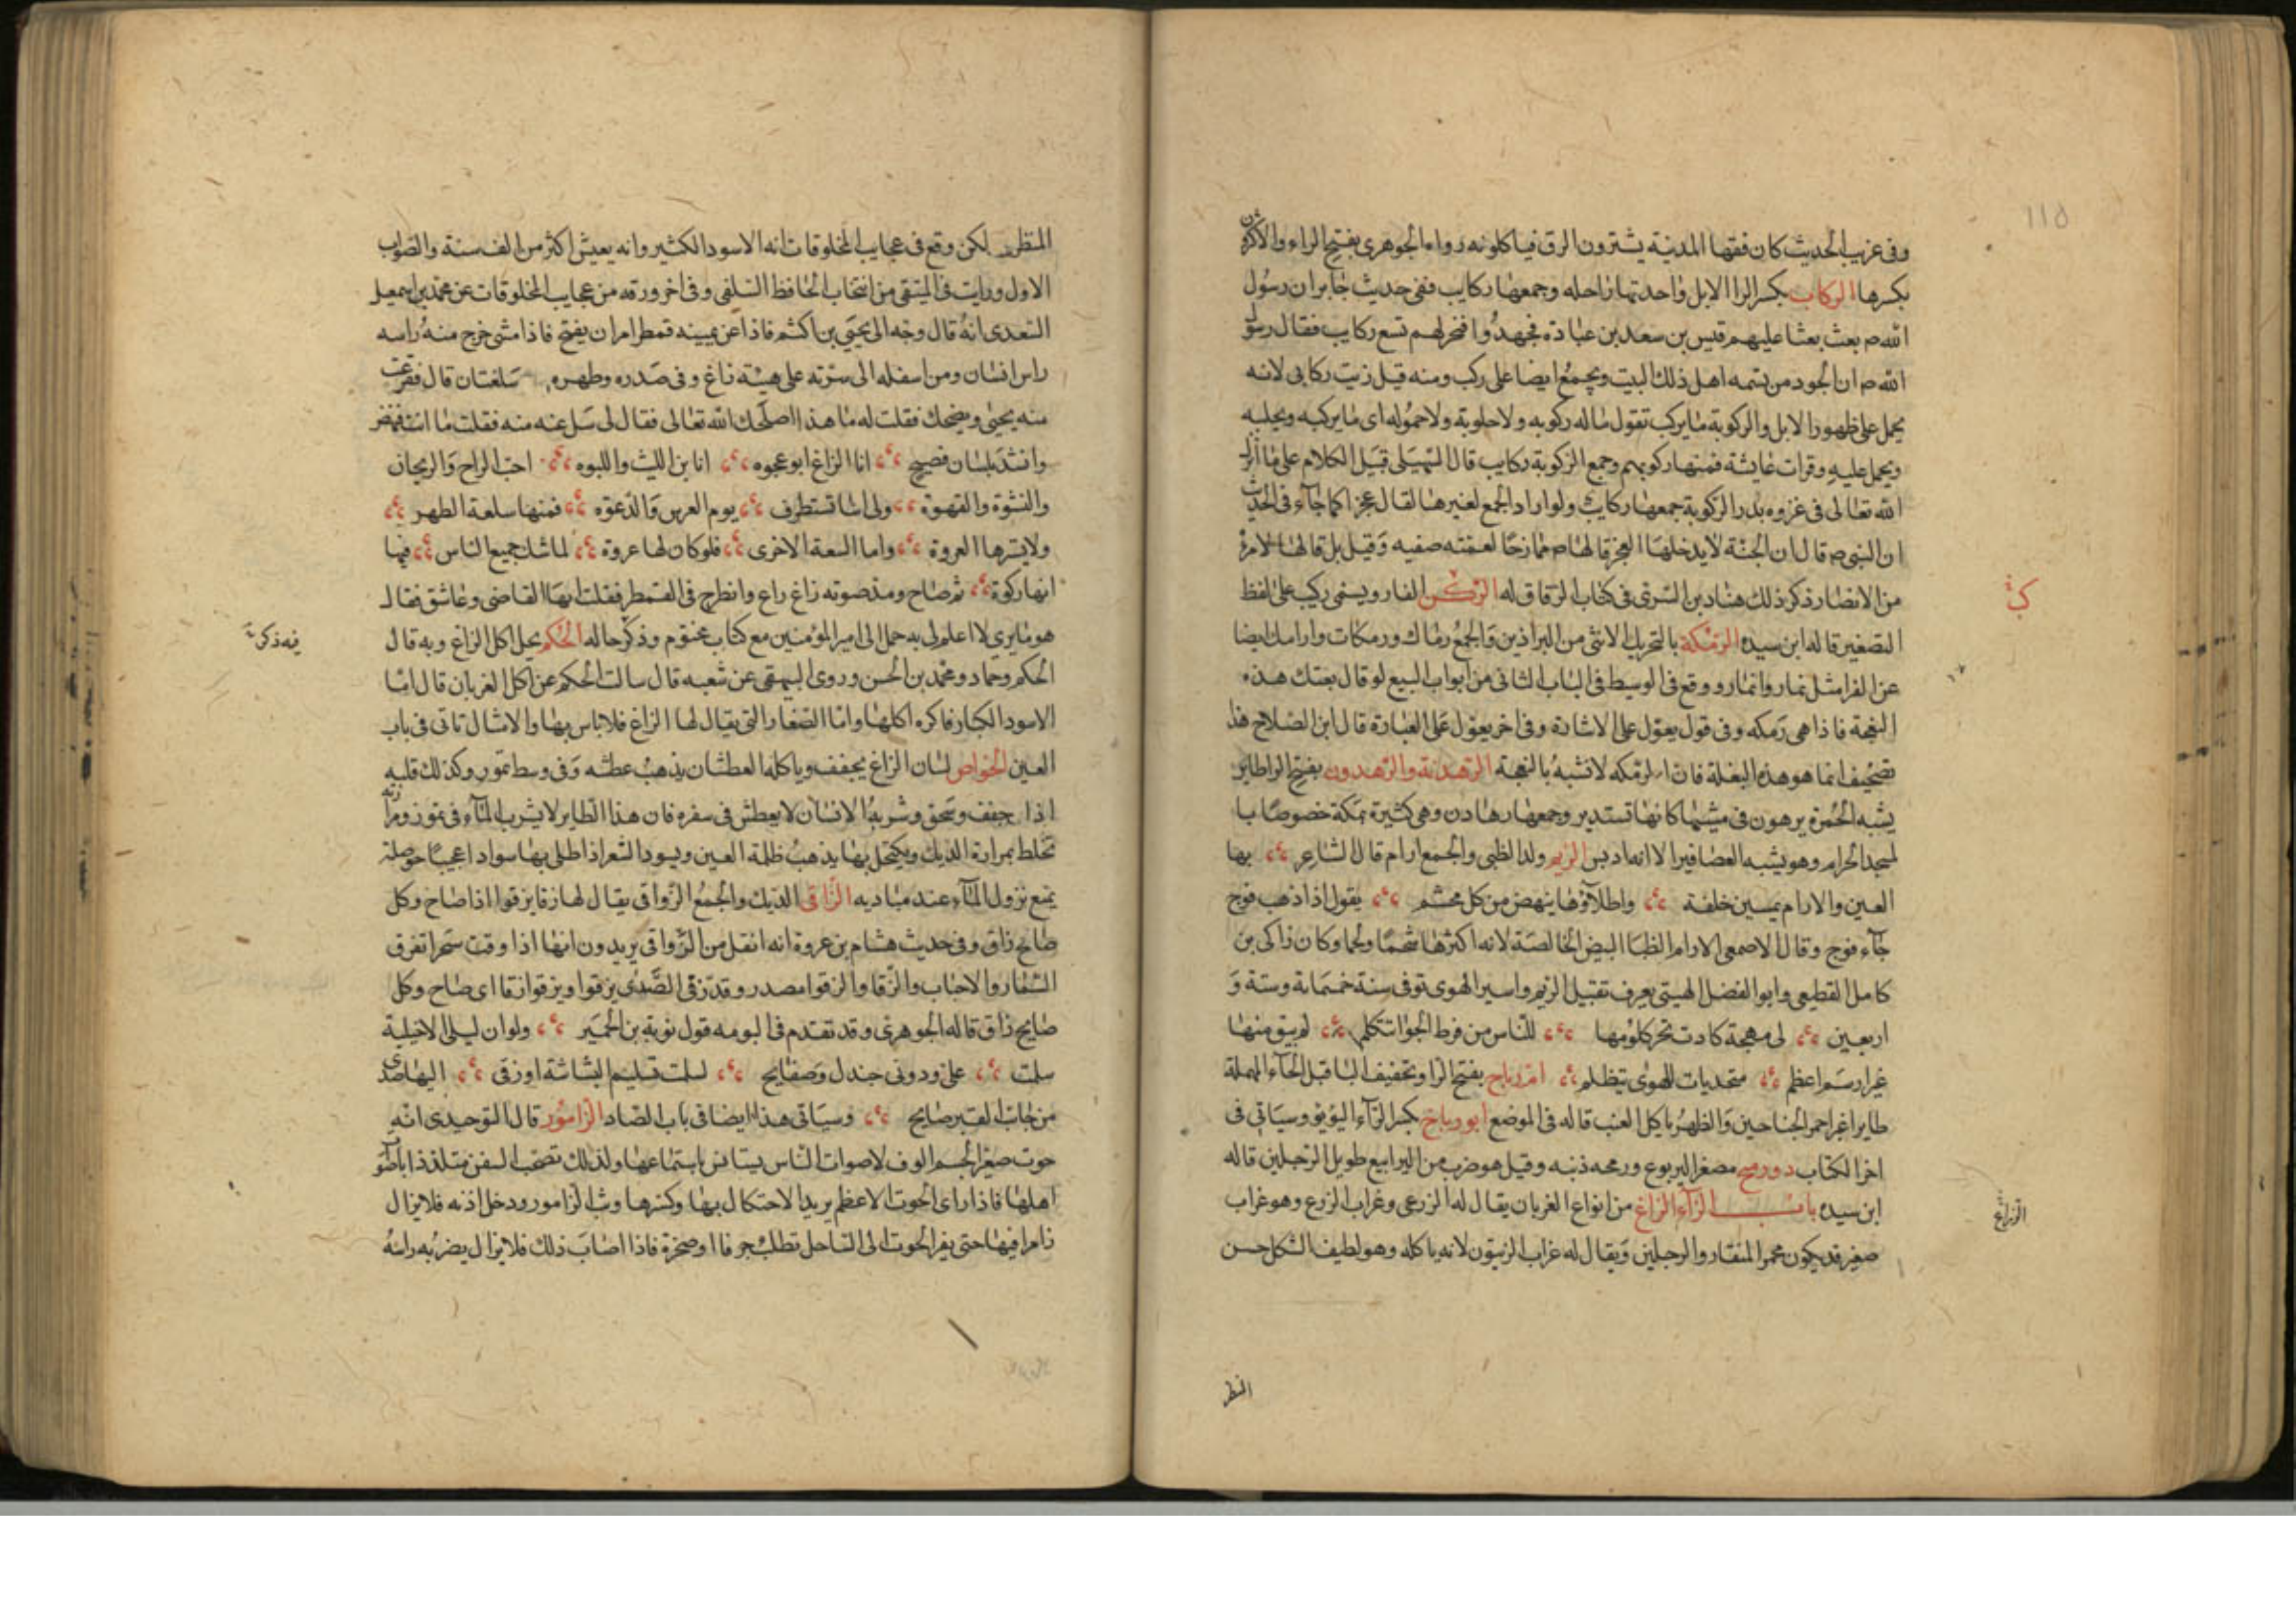 115
وفى غريب الحديث كان فقها المدينة يشترون الرق فياكلونه رواه الجوهرى بفتح الراء والاكثرون
بكسرها الركاب بكسر الرا الابل واحدتها راحله وجمعها ركايب ففى حديث جابر ان رسول
الله ص بعث بعثا عليهم قيس بن سعد بن عبادة فجهدوا فنحر لهم تسع ركايب فقال رسول
الله ص ان الجود من شيمه اهل ذلك البيت ويجمع ايضا على ركب ومنه قيل زيت ركابى لانه
يحمل على ظهور الابل والركوبة ما يركب تقول ماله ركوبه ولا حلوبة ولا حموله اى ما يركبه ويحلبه
ويحمل عليه وقرات عايشة فمنها ركوبتهم وجمع الركوبة ركايب قال السهيلى قبيل الكلام على ما انزل
الله تعالى فى غزوه بدر الركوبة جمعها ركايب ولو اراد الجمع لغيرها لقال عجز كما جاء فى الحديث
ان النبى ص قال ان الجنة لا يدخلها العجز قالها ص ممازحا لعمته صفيه وقيل بل قالها لامراة
من الانصار ذكر ذلك هناد بن السرى فى كتاب الرقاق له الركن الفار ويسمى ركيب على لفظ
التصغير قاله ابن سيده الرمكة بالتحريك الانثى من البراذين والجمع رماك ورمكات وارامك ايضا
عن الفرا مثل ثمار واثمار ووقع فى الوسيط فى الباب الثانى من ابواب البيع لو قال بعتك هذه
النعجة فاذا هى رمكه وفى قول يعول على الاشارة وفى اخر يعول على العبارة قال ابن الصلاح هذا
تصحيف انما هو هذه البغلة فان الرمكه لا تشبه بالنعجة الرهدنة والرهدون بفتح الرا طاير
يشبه الحمرة يرهون فى مشيها كانها تستدير وجمعها رهادن وهى كثيرة بمكة خصوصا با
لمسجد الحرام وهو يشبه العصافير الا انه ادبس الريم ولد الظبى والجمع ارام قال الشاعر بها
العين والارام يمسين خلفة واطلاؤها ينهضن من كل مجثم يقول اذا ذهب فوج
جاء فوج وقال الاصمعى الارام الظبا البيض الخالصة لانه اكثرها شحما ولحما وكان زاكى بن
كامل القطيعى وابو الفضل الهيتى يعرف بقتيل الريم واسير الهوى توفى سنة خمسماية وستة و
اربعين لى مهجة كادت تحر كلومها للناس من فرط الجوا تتكلم لم يبق منها
غير ارسم اعظم متحديات للهوى تتظلم ام رباح بفتح الرا وتخفيف البا قبل الحاء المهملة
طاير اغبر احمر الجناحين والظهر ياكل العنب قاله فى الموضع ابو رياح بكسر الراء اليويو وسياتى فى
اخر الكتاب ذو رميح مصغر اليربوع ورمحه ذنبه وقيل هو ضرب من اليرابيع طويل الرجلين قاله
ابن سيده باب الزاء الزاغ من انواع الغربان يقال له الزرعى وغراب الزرع وهو غراب
صغير قد يكون محمر المنقار والرجلين ويقال له غراب الزيتون لانه ياكله وهو لطيف الشكل حسن
الزاغ
المنظر
المنظر لكن وقع فى عجايب المخلوقات انه الاسود الكثير وانه يعيش اكثر من الف سنة والصواب
الاول ورايت فى المنتقى من انتخاب الحافظ السلفى وفى اخر ورقه من عجايب المخلوقات عن محمد بن اسمعيل
السعدى انه قال وجه الى يحيى بن اكثم فاذا عن يمينه قمطر امر ان يفتح فاذا مشى خرج منه راسه
راس انسان ومن اسفله الى سرته على هيئة زاغ وفى صدره وظهره سلعتان قال ففزعت
منه يحيى ويضحك فقلت له ما هذا اصلحك الله تعالى فقال لى سل عنه منه فقلت ما انت فنهض
وانشد بلسان فصيح انا الزاغ ابو عجوه انا ابن الليث واللبوه احب الراح والريحان
والنشوة والقهوة ولى اشيا تستطرف يوم العرس والدعوه فمنها سلعة الظهر
ولا يسترها العروة واما السعة الاخرى فلو كان لها عروة لما شك جميع الناس فيها
انها ركوة ثم صاح ومد صوته زاغ راع وانطرح فى القمطر فقلت ايها القاضى وعاشق فقال
هو ما يرى لا اعلم لى به حمل الى امير المؤمنين مع كتاب مختوم وذكر حاله الحكم يحل اكل الزاغ وبه قال
فيه ذكر
الحكم وحماد ومحمد بن الحسن وروى البيهقى عن شعبه قال سالت الحكم عن اكل الغربان قال اما
الاسود الكبار فاكره اكلها واما الصغار التى يقال لها الزاغ فلا باس بها والامثال تاتى فى باب
العين الخواص لسان الزاغ يجفف وياكله العطشان يذهب عطشه وفى وسط تموز وكذلك قلبه
اذا جفف وسحق وشربه الانسان لا يعطش فى سفره فان هذا الطاير لا يشرب الماء فى تموز ومرارته
تخلط بمرارة الديك ويكتحل بها يذهب ظلمة العين ويسود الشعر اذا طلى بها سوادا عجيبا حوصلته
يمنع نزول الماء عند مباديه الزاقى الديك والجمع الزواقى يقال لها زقا يزقوا اذا صاح وكل
صايح زاق وفى حديث هشام بن عروة انه اثقل من الزواقى يريدون انها اذا وقت سحرا تفرق
السمار والاحباب والزقا والزقوا مصدر وقد زقى الصدى يزقوا ويزقو زقا اى صاح وكل
صايح زاق قاله الجوهرى وقد تقدم فى البومه قول توبة بن الحمير ولو ان ليلى الاخيلية
سلمت على ودونى جندل وصفايح لسلمت تسليم البشاشة او زقى اليها صدى
من جانب القبر صايح وسياتى هذا ايضا فى باب الصاد الزامور قال التوحيدى انه
حوت صغير الجسم الوف لاصوات الناس يستانس باستماعها ولذلك تصحب السفن متلذذا باصوات
اهلها فاذا راى الحوت الاعظم يريد الاحتكاك بها وكسرها وثب الزامور ودخل اذنه فلا يزال
زامرا فيها حتى يفر الحوت الى الساحل تطلب جرفا او صخرة فاذا اصاب ذلك فلا يزال يضرب به راسه